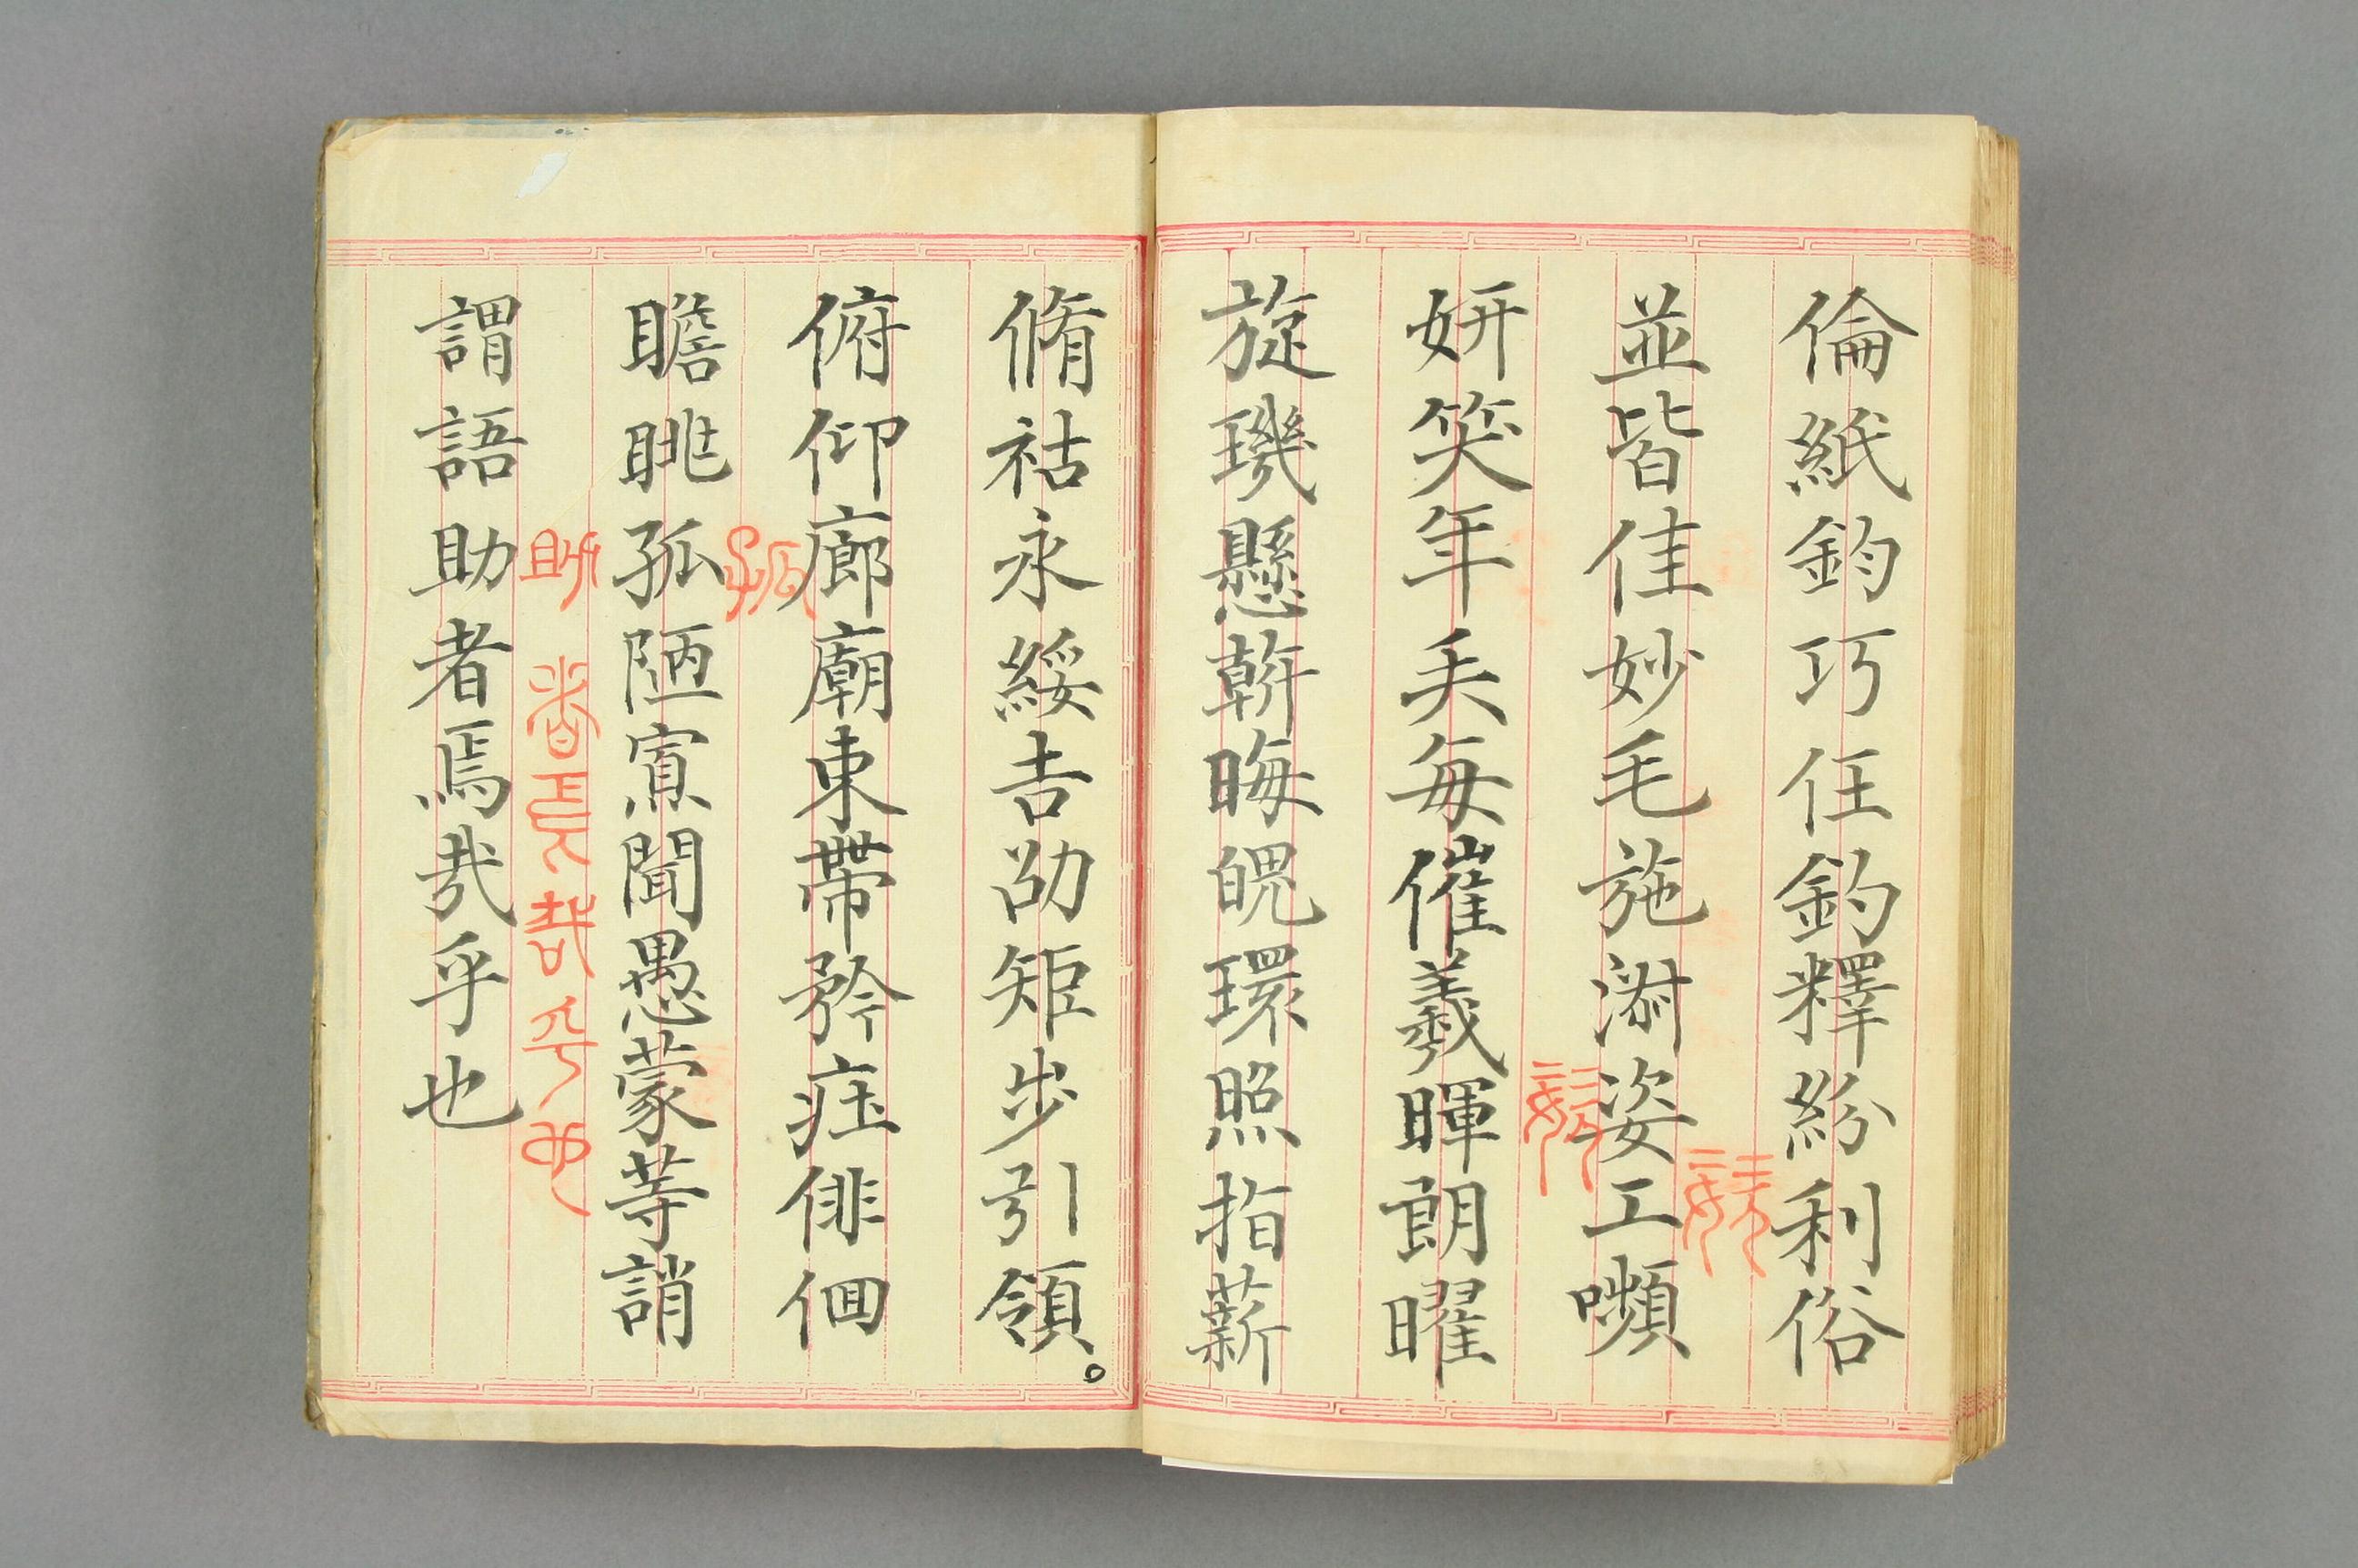 倫紙鈞巧任釣釋紛利俗
並皆佳妙毛施淑姿工嚬
妍笑年矢每催羲暉朗曜
旋璣懸斡晦魄環照指薪
脩祜永綏吉劭矩步引領。
俯仰廊廟束帶矜莊俳佪
孤
瞻眺孤陋寡聞愚蒙等誚
助者焉哉乎也
謂語助者焉哉乎也